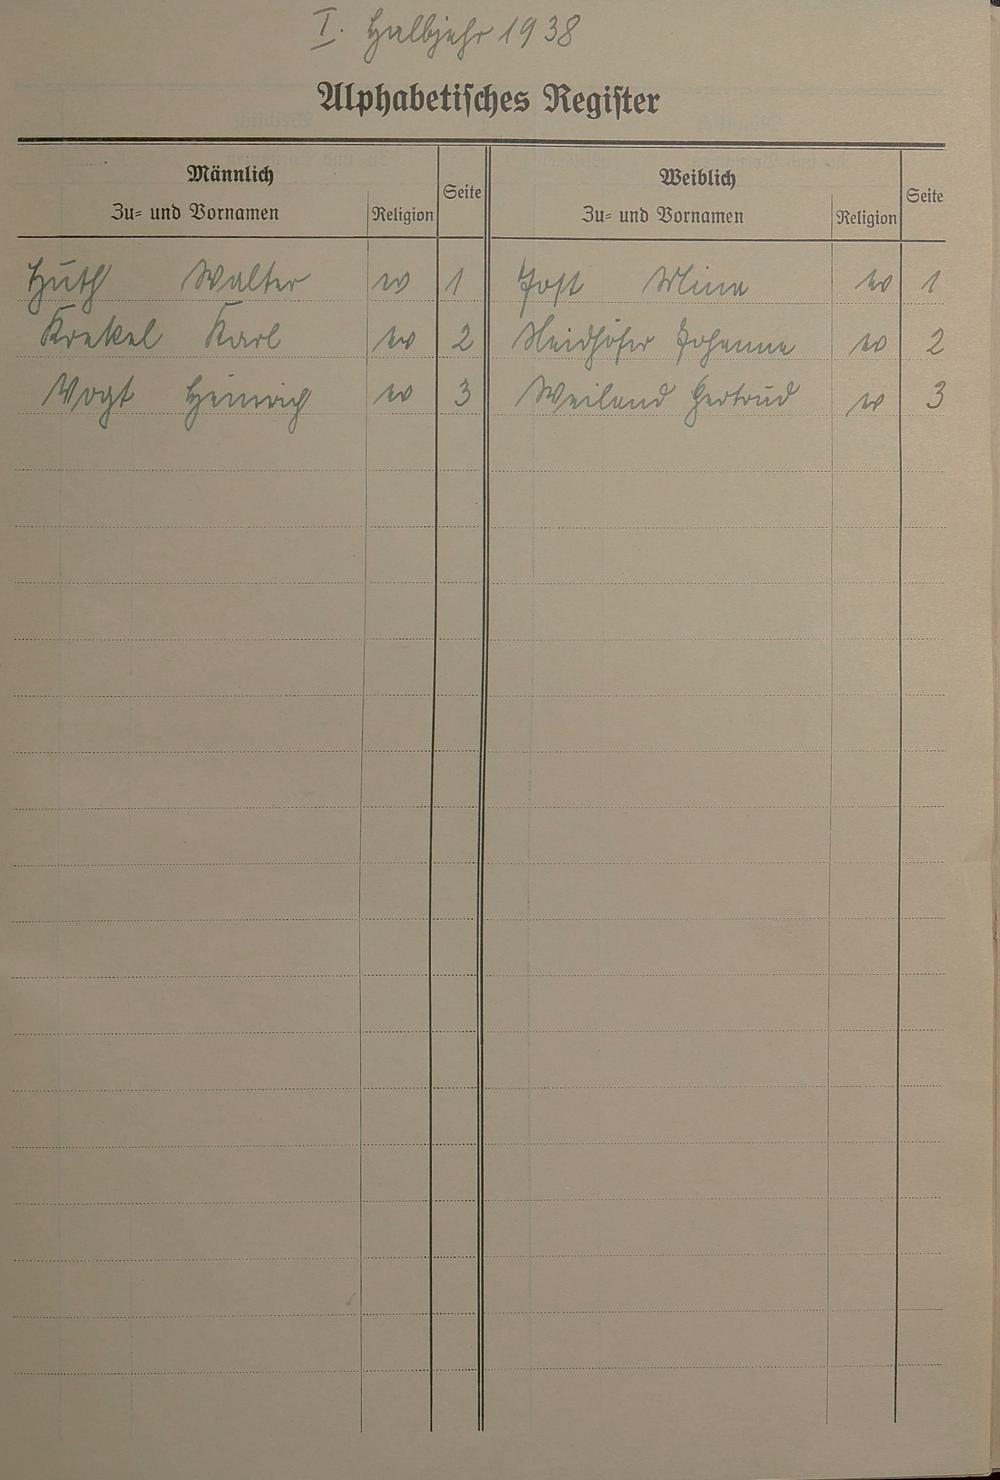 I. Halbjahr 1938
Alphabetisches Register
Männlich Seite Weiblich Seite
Zu- und Vornamen Religion Zu- und Vornamen Religion
Huth Walter ev 1 Jost Mina ev 1
Krekel Karl ev 2 Neidhöfer Johanna ev 2
Vogt Heinrich ev 3 Weiland Gertrud ev 3